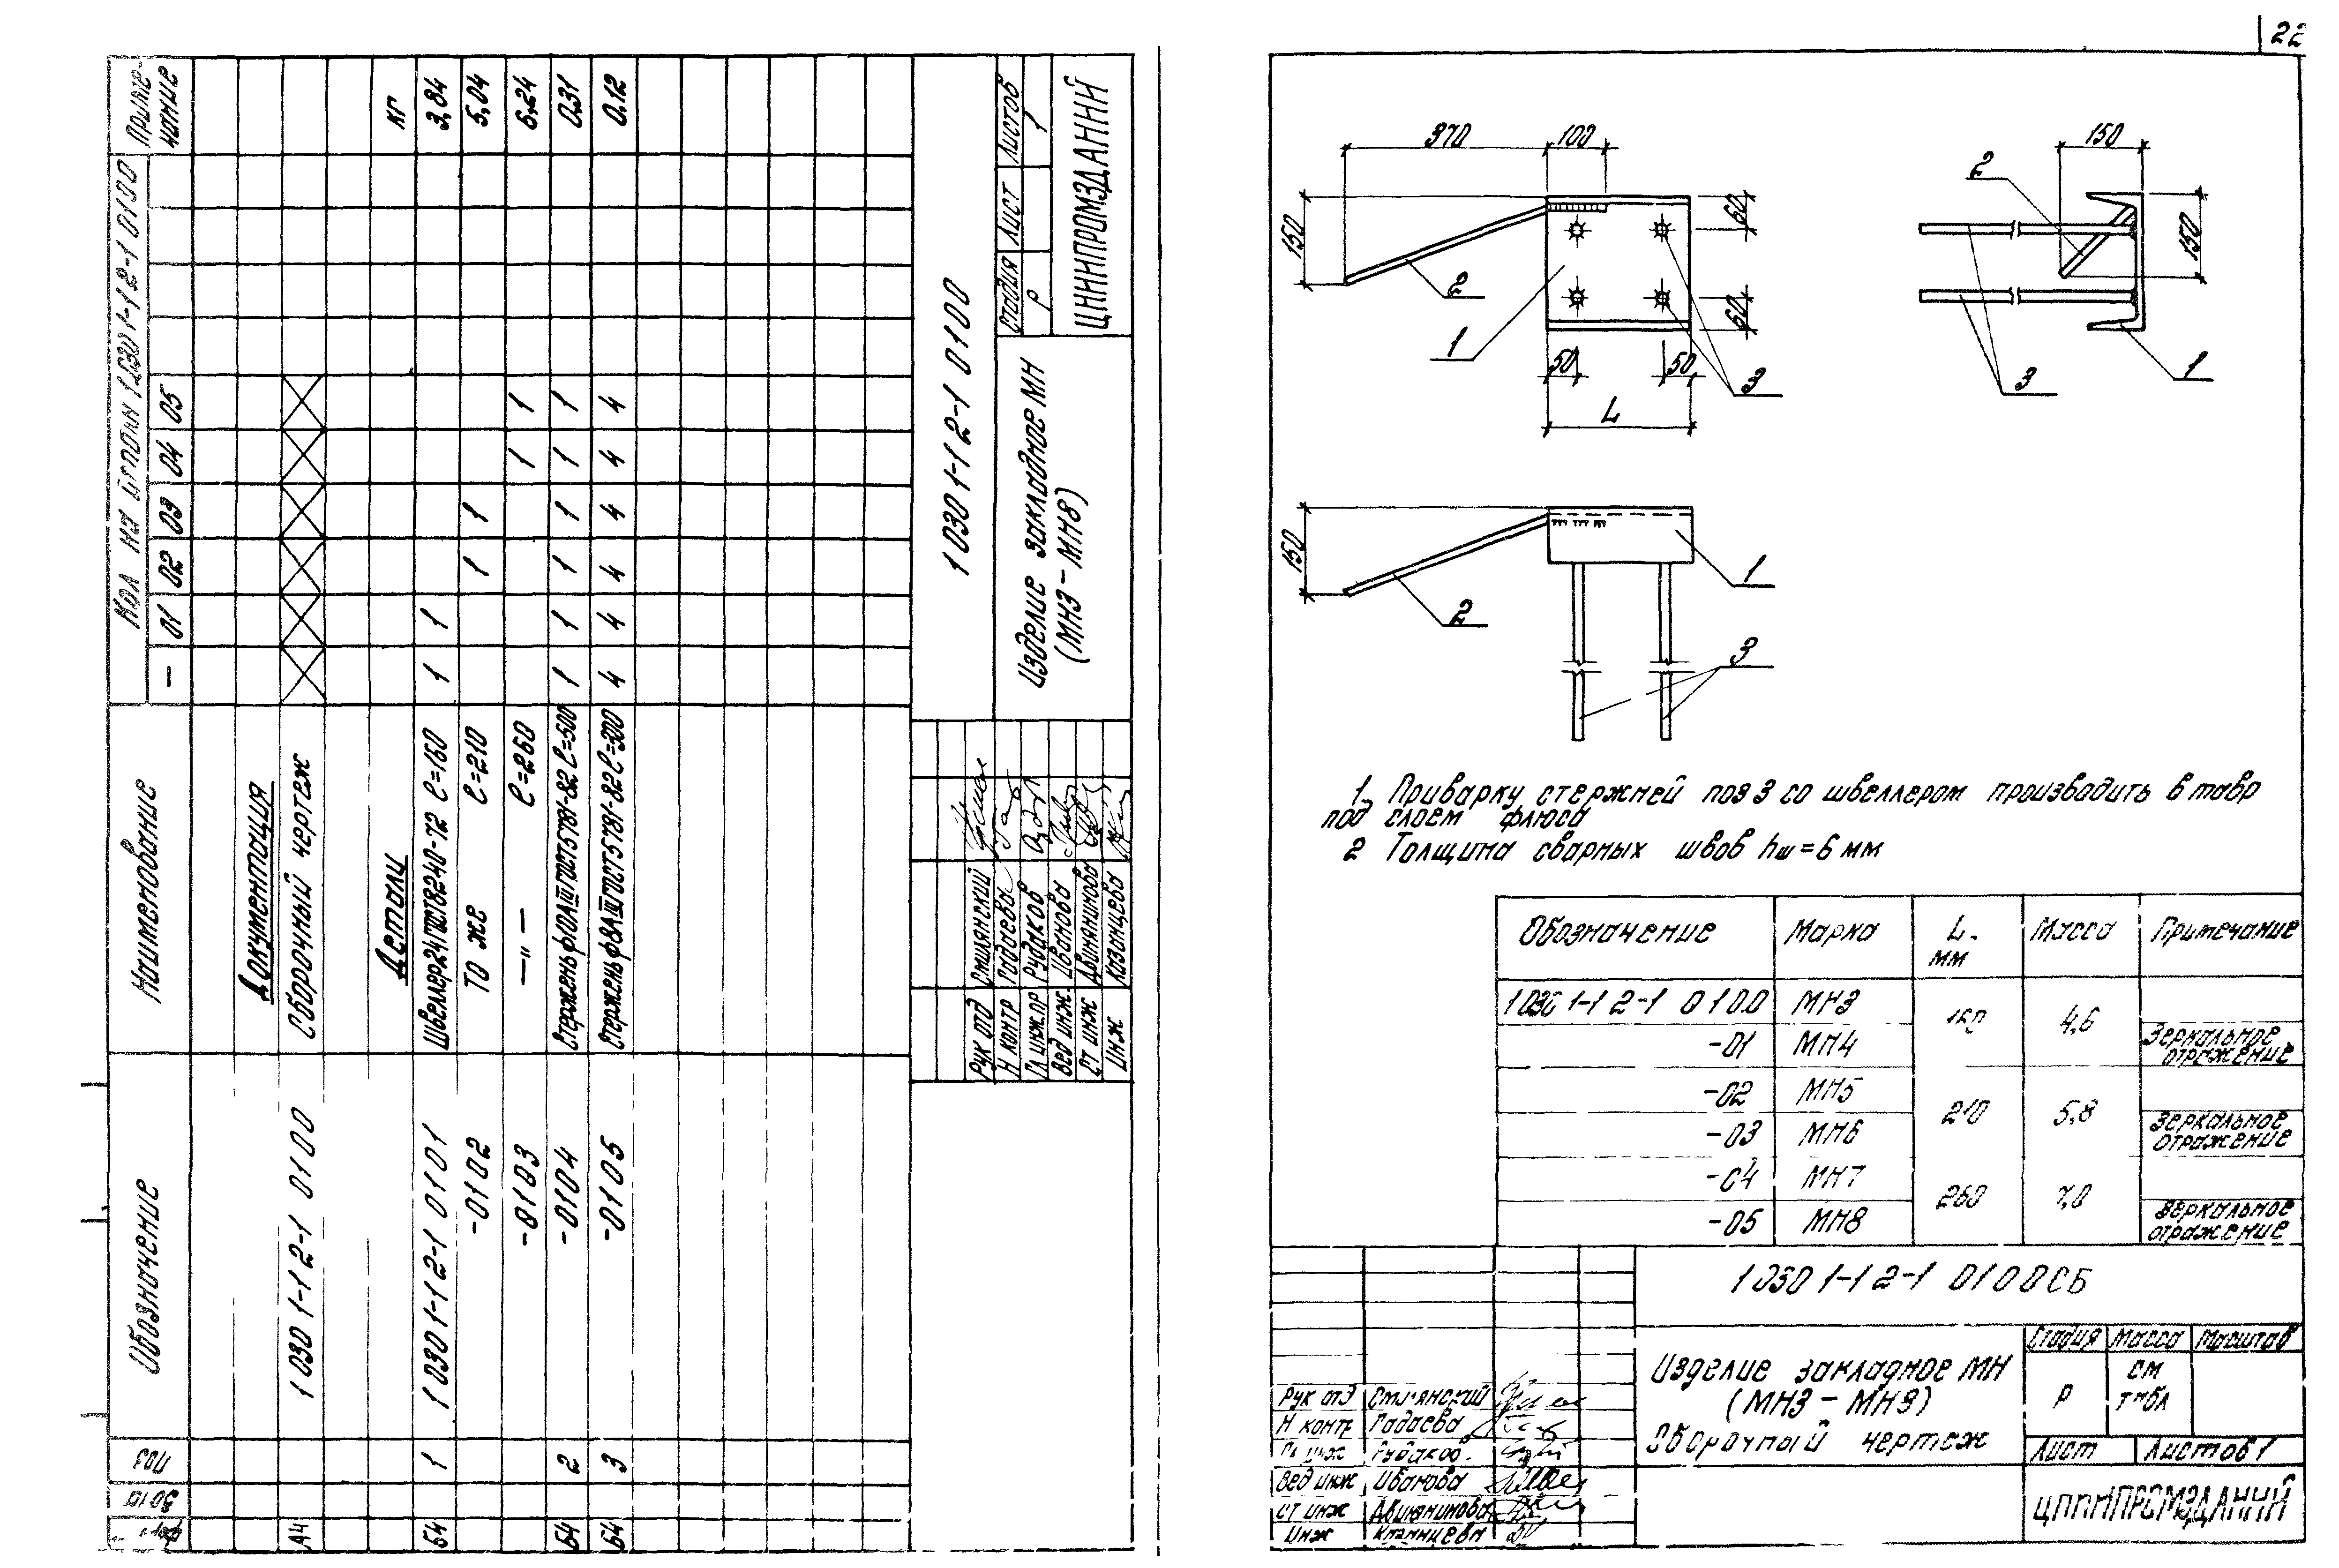 Обозначение
Наименование
Кол на исполн 1.030 1-1 2-1 0100
Приме-
чание
Поз
— 01 02 03 04 05
Документация
А4 1 030 1-1 2-1 0100 Сборочный чертеж
Детали кг
Б4 1 1 030 1-1 2-1 0101 Швеллер24ГОСТ8240-72 ℓ=160 1 1 3,84
-0102 То же ℓ=210 1 1 5,04
-0103 —"— ℓ=260 1 1 6,24
Б4 2 -0104 Стержень ф10АIII ГОСТ5781-82 ℓ=500 1 1 1 1 1 1 0.31
Б4 3 -0105 Стержень ф8АIII ГОСТ5781-82 ℓ=300 4 4 4 4 4 4 0.12
1 030 1-1 2-1 0100
Рук отд Смилянский
Н контр Гадаева
Гл инж пр Рудаков
Вед инж. Иванова
Ст инж
Инж Казанцева
Изделие закладное МН
(МН3 - МН8)
Стадия Лист Листов
Р 1
ЦНИИПРОМЗДАНИЙ
22
370 100
150
60
60
50 50
L
1
2
3
150
150
2
3
1
150
1
2
3
1. Приварку стержней поз 3 со швеллером производить в тавр
под слоем флюса
2 Толщина сварных швов hш = 6 мм
Обозначение Марка L. Масса Примечание
мм
1 030 1-1 2-1 0100 МН3 160 4,6
-01 МН4 Зеркальное
отражение
-02 МН5 210 5,8
-03 МН6 Зеркальное
отражение
-04 МН7 260 7,0
-05 МН8 Зеркальное
отражение
1 030 1-1 2-1 0100СБ
Изделие закладное МН
(МН3 - МН8)
Сборочный чертеж
Стадия Масса Масштаб
Р см
табл
Лист Листов 1
Рук отд Смилянский
Н контр Гадаева
Гл инж Рудаков
Вед инж Иванова
Ст инж
Инж Казанцева
ЦНИИПРОМЗДАНИЙ